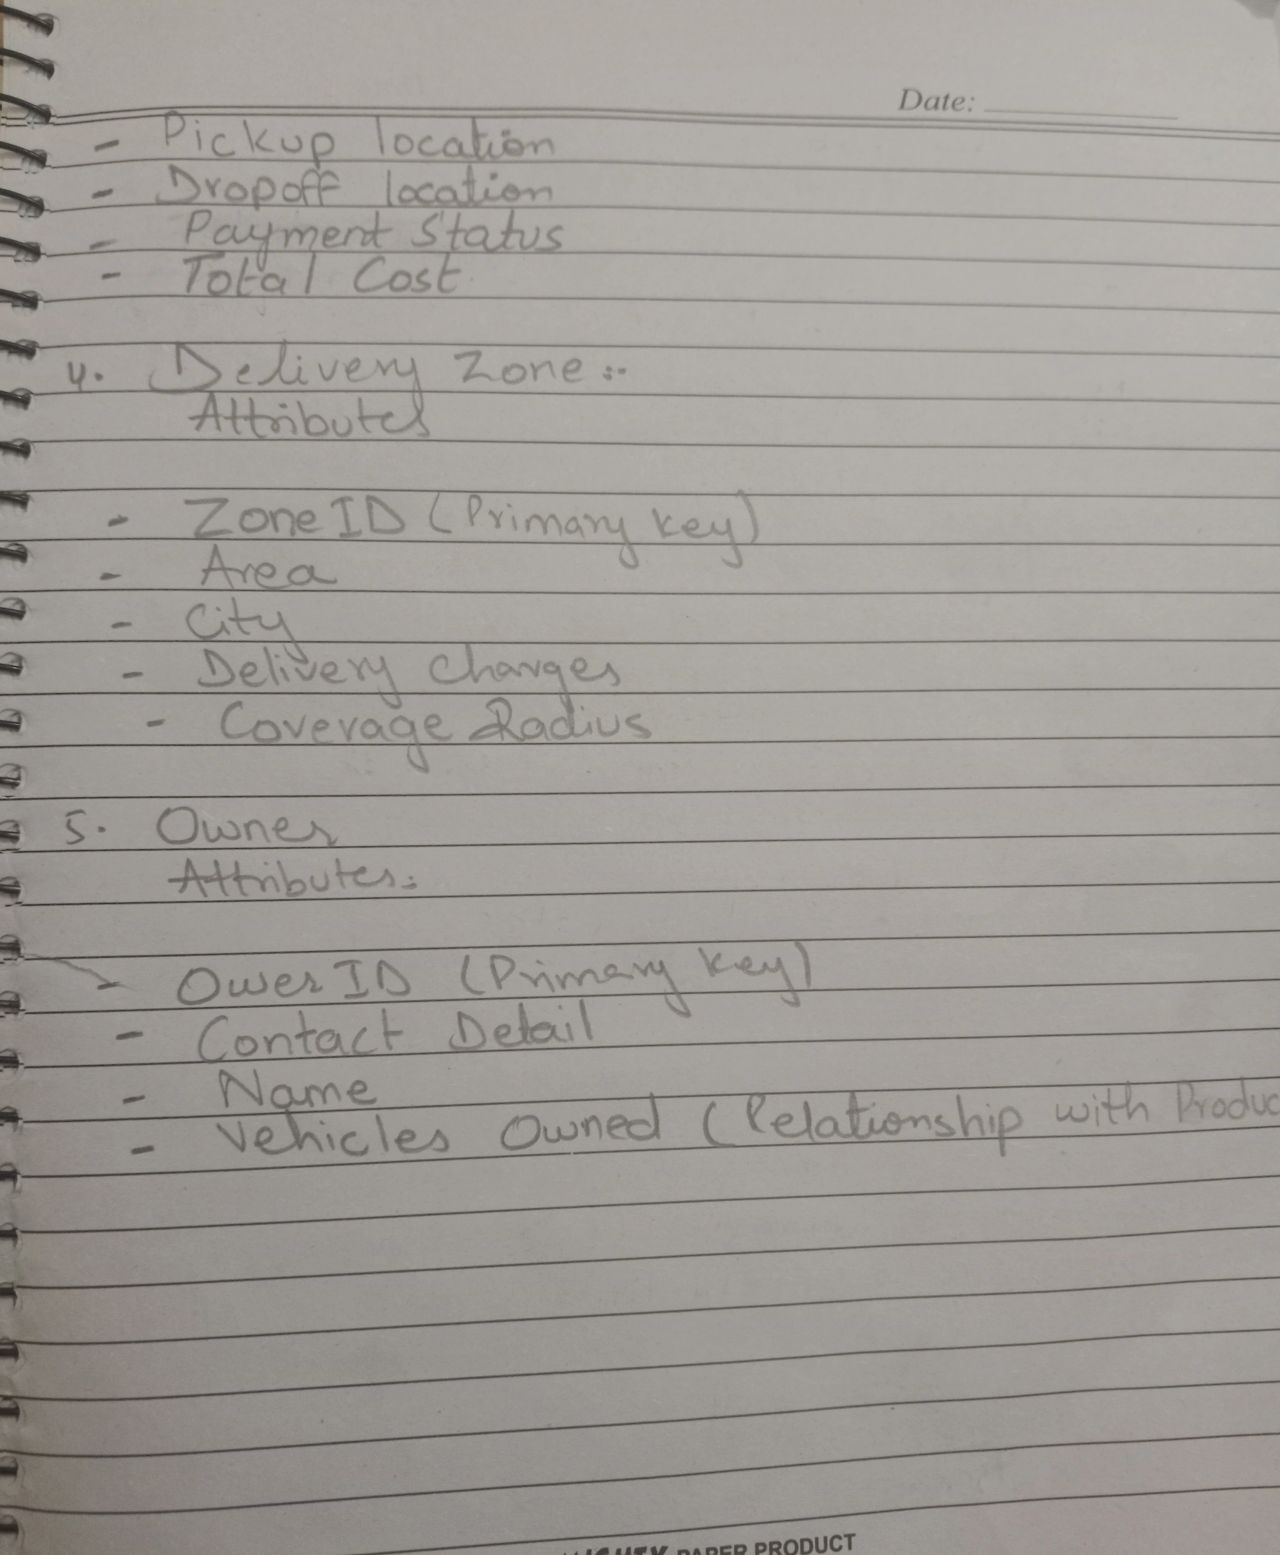 Date:
- Pickup location
- Dropoff location
- Payment Status
- Total Cost.
4. Delivery Zone :-
Attributes
- Zone ID (Primary key)
- Area
- City
- Delivery Charges
- Coverage Radius
5. Owner
Attributes:
- Ower ID (Primary key)
- Contact Detail
- Name
- Vehicles Owned (Relationship with Produc
PAPER PRODUCT